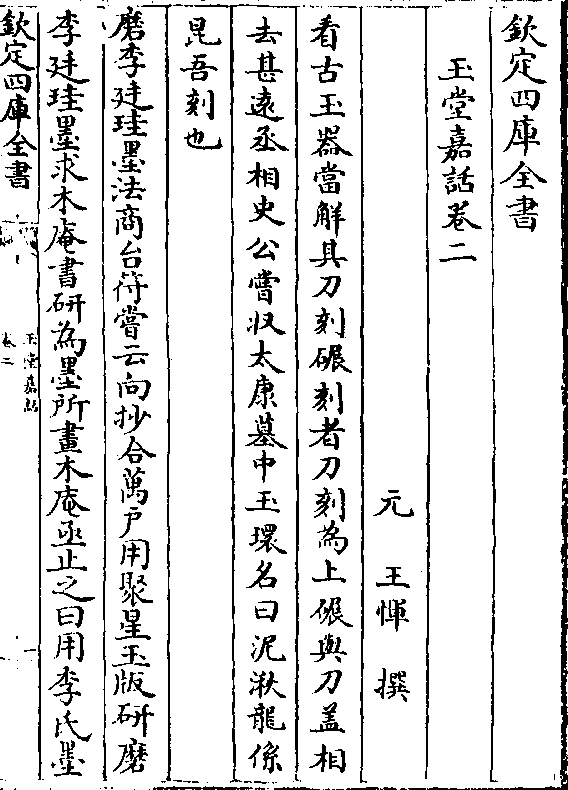 欽定四庫全書
玉堂嘉話卷二
元 王惲 撰
看古玉器當解具刀刻碾刻者刀刻為上碾與刀盖相
去甚遠丞相史公嘗収太康墓中玉環名曰泥湫龍係
昆吾刻也
磨李廷珪墨法商台符嘗云向抄合萬户用聚星玉版研磨
李廷珪墨求木庵書研為墨所畫木庵亟止之曰用李氏墨
欽定四庫全書
玉堂嘉話
卷二
一